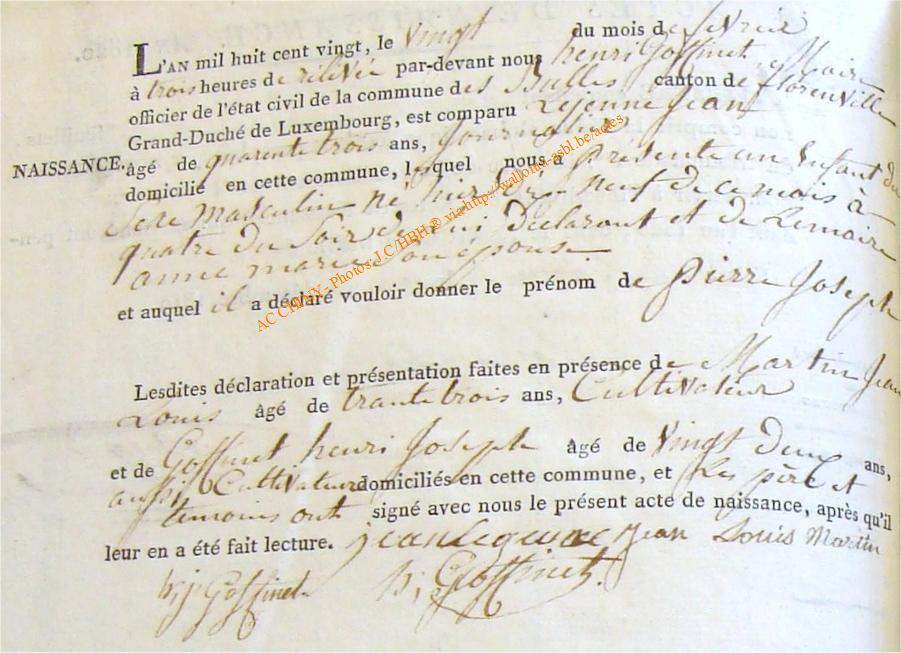 L'AN mil huit cent vingt, le vingt du mois de fevrier
à trois heures de rélivée par-devant nous henri Goffinet, Maire
officier de l'état civil de la commune des Bulles canton de florenville
Grand-Duché de Luxembourg, est comparu Lejeune Jean
NAISSANCE. âgé de quarente trois ans, Journalier
domicilié en cette commune, lequel nous a présenté un Enfant du
Sexe Masculin né hier Dix neuf de ce mois à
quatre du Soir de lui Déclarant et de Lemaire
anne marie Son épouse
et auquel il a déclaré vouloir donner le prénom de Pierre Joseph
Lesdites déclaration et présentation faites en présence de Martin Jean
Louis âgé de trante trois ans, Cultivateur
et de Goffinet henri Joseph âgé de Vingt Deux ans,
aussi Cultivateur domiciliés en cette commune, et Les père et
temoins ont signé avec nous le présent acte de naissance, après qu'il
leur en a été fait lecture. jean Lejeune Jean Louis Martin
h, j, Goffinet h, Goffinet.
AC CHINY - Photos J.C/HBH® via http://wallonia-asbl.be/actes